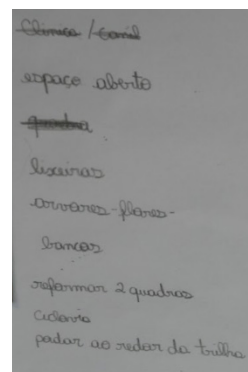 Clinica / Canil
espaço aberto
quadra
lixeiras
arvores - flores -
bancos
reformar 2 quadras
ciclovia
podar ao redor da trilha